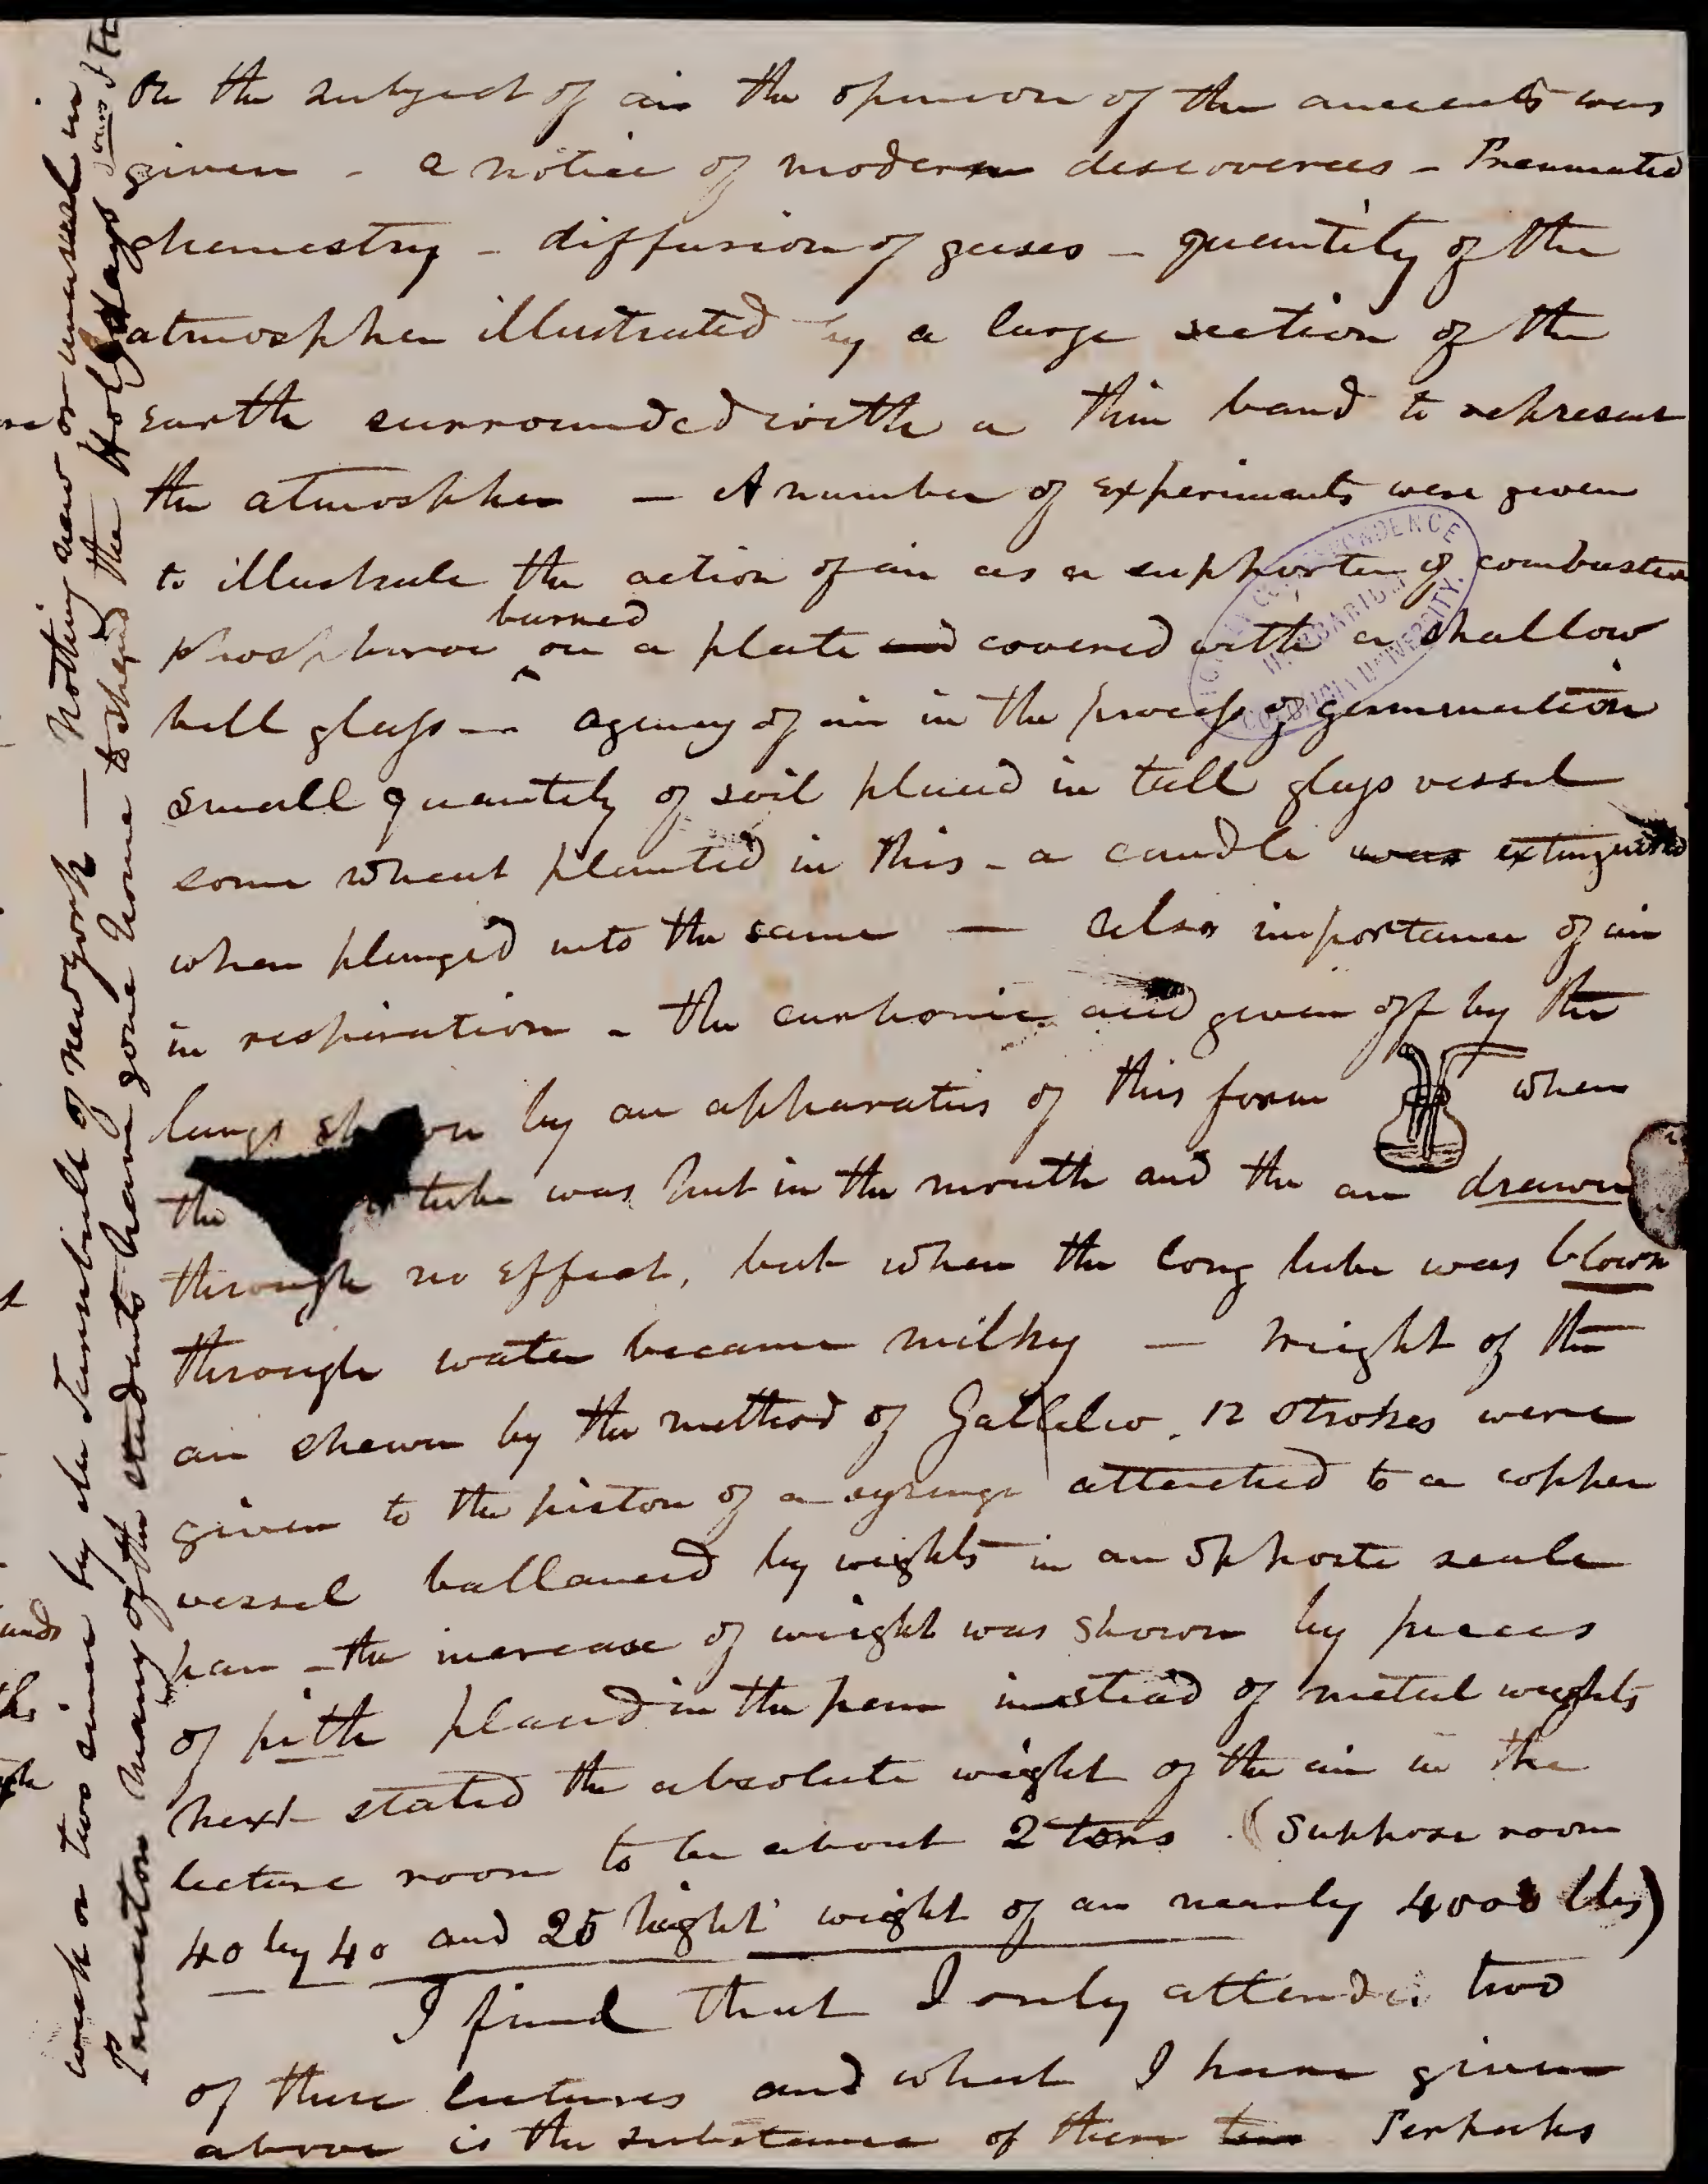 On the subject of air the opinion of the ancients was
given - a notice of modern discoveries - Pneumatic
chemestry - diffusion of gases - quantity of the
atmospher illustrated by a large section of the
earth surrounded with a thin band to represent
the atmospher — A number of experiments were given
to illustrate the action of air as a supporter of combustion
burned
Phosphorous on a plate and covered with a shallow
bell glass — agency of air in the process of germination
small quantity of soil placed in tall glass vessel
some wheat planted in this - a candle was extinguished
when plunged into the same — also importance of air
in respiration - the carbonic acid given off by the
lungs shown by an apparatus of this form when
the tube was put in the mouth and the air drawn
through no effect, but when the long tube was blown
through water became milky — weight of the
air shewn by the method of Gallileo. 12 strokes were
given to the piston of a syringe attatched to a copper
vessel ballanced by weights in an opposte scale
pan - the increase of weight was shown by pieces
of pith placed in the pan instead of metal weights
next stated the absolute weight of the air in the
lecture room to be about 2 tons. (Suppose room
40 by 40 and 25 hight weight of air nearly 4000 lbs)
I find that I only attended two
of these lectures and what I have given
above is the substance of them two Perhaps
week or two since by the Turnbulls of newyork — Nothing new or unusual in
Princeton many of the students have gone home to spend the Holydays
HERBARIUM
COLUMBIA UNIVERSITY.